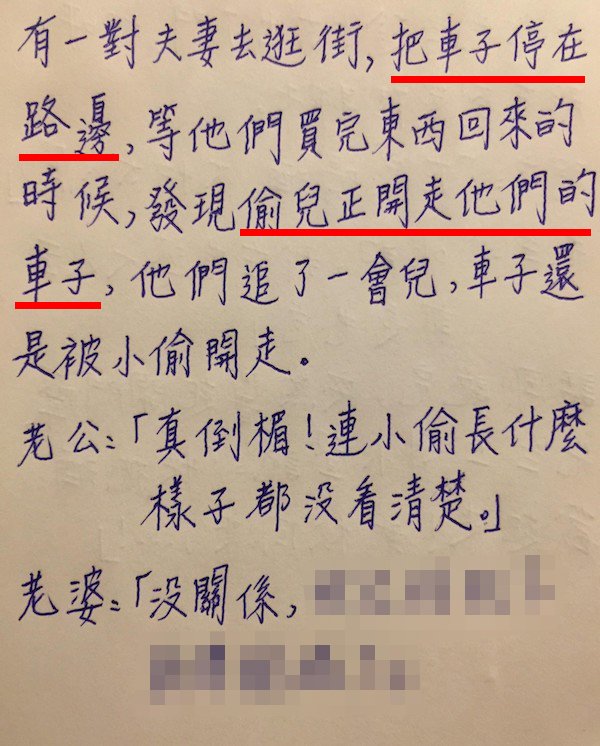 有一對夫妻去逛街,把車子停在
路邊,等他們買完東西回來的
時候,發現偷兒正開走他們的
車子,他們追了一會兒,車子還
是被小偷開走。
老公:「真倒楣!連小偷長什麼
樣子都没看清楚。」
老婆:「没關係,